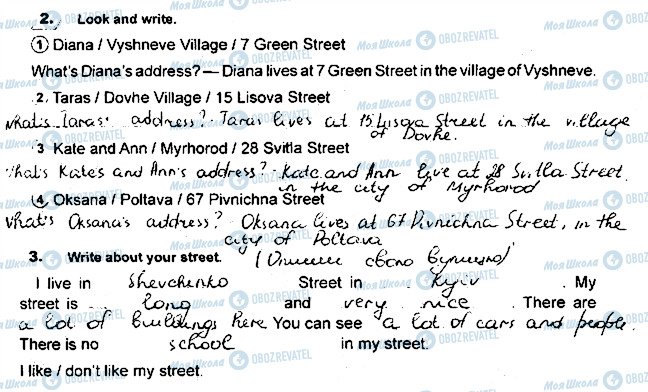 2. Look and write.
1 Diana / Vyshneve Village / 7 Green Street
What's Diana's address? — Diana lives at 7 Green Street in the village of Vyshneve.
2. Taras / Dovhe Village / 15 Lisova Street
What's Taras' address? Taras lives at 15 Lisova Street in the village
of Dovhe.
3 Kate and Ann / Myrhorod / 28 Svitla Street
What's Kate's and Ann's address? - Kate and Ann live at 28 Svitla Street
in the city of Myrhorod
4. Oksana / Poltava / 67 Pivnichna Street
What's Oksana's address? Oksana lives at 67 Pivnichna Street, in the
city of Poltava
3. Write about your street. (Опишіть свою вулицю)
I live in Shevchenko Street in Kyiv. My
street is long and very nice. There are
a lot of buildings here You can see a lot of cars and people.
There is no school in my street.
I like / don't like my street.